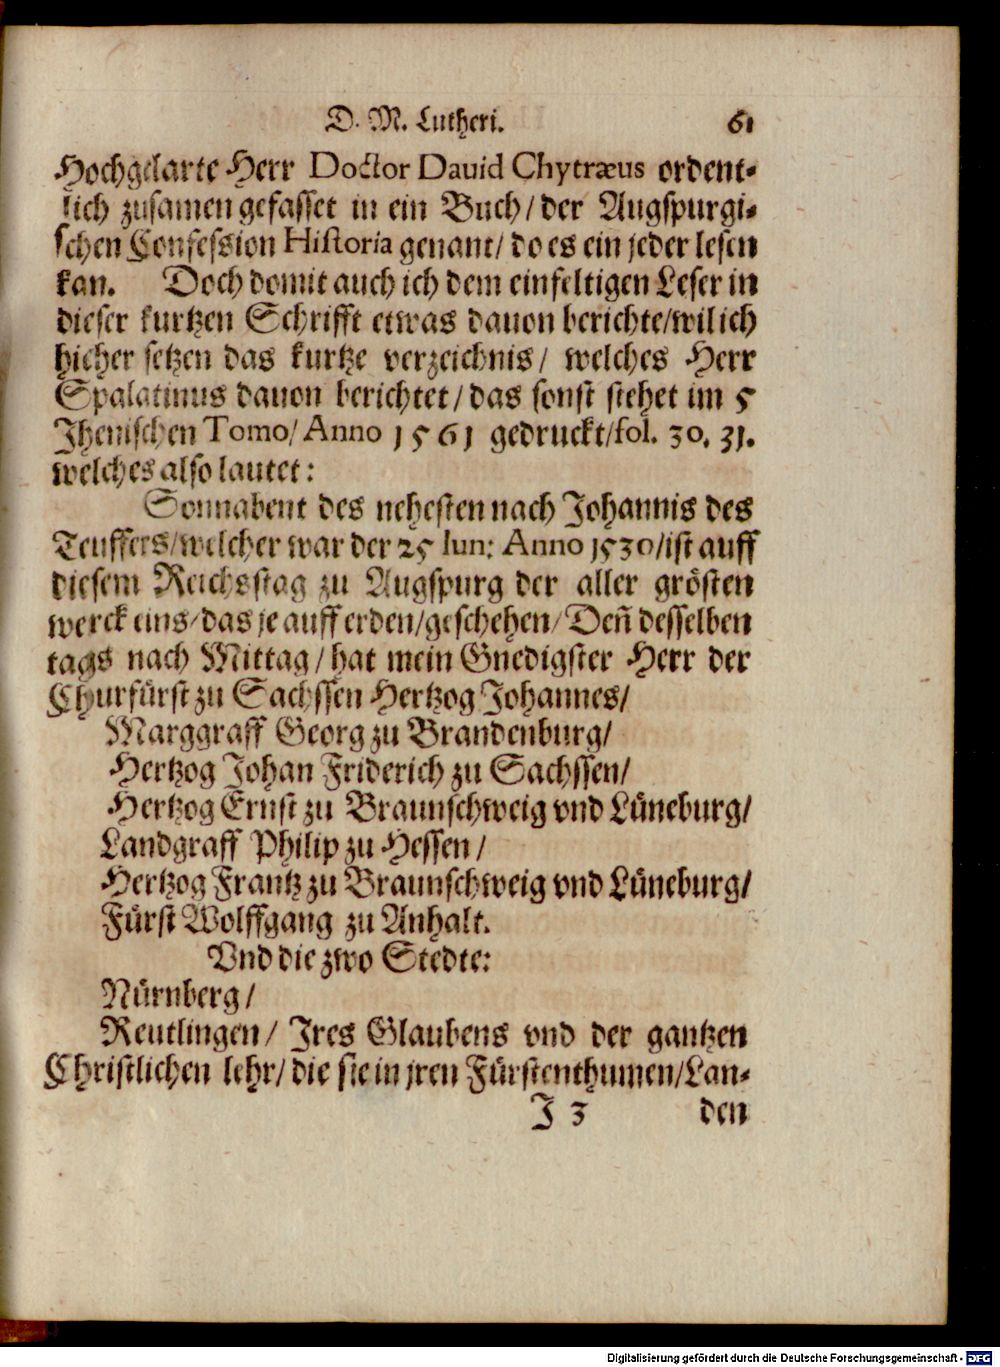 D. M. Lutheri. 61
Hochgelarte Herr Doctor Dauid Chytræus ordent-
lich zusamen gefasset in ein Buch/ der Augspurgi-
schen Confession Historia genant/ do es ein jeder lesen
kan. Doch domit auch ich dem einfeltigen Leser in
dieser kurtzen Schrifft etwas dauon berichte/ wil ich
hieher setzen das kurtze verzeichnis/ welches Herr
Spalatinus dauon berichtet/ das sonst stehet im 5
Jhenischen Tomo/ Anno 1561 gedruckt/ fol. 30. 31.
welches also lautet:
Sonnabent des nehesten nach Johannis des
Teuffers/ welcher war der 25 Iun: Anno 1530/ ist auff
diesem Reichsstag zu Augspurg der aller grösten
werck eins/ das je auff erden/ geschehen/ Deñ desselben
tags nach Mittag/ hat mein Gnedigster Herr der
Churfürst zu Sachssen Hertzog Johannes/
Marggraff Georg zu Brandenburg/
Hertzog Johan Friderich zu Sachssen/
Hertzog Ernst zu Braunschweig vnd Lüneburg/
Landgraff Philip zu Hessen/
Hertzog Frantz zu Braunschweig vnd Lüneburg/
Fürst Wolffgang zu Anhalt.
Vnd die zwo Stedte:
Nürnberg/
Reutlingen/ Ires Glaubens vnd der gantzen
Christlichen lehr/ die sie in jren Fürstenthumen/ Lan-
J 3 den
Digitalisierung gefördert durch die Deutsche Forschungsgemeinschaft - DFG